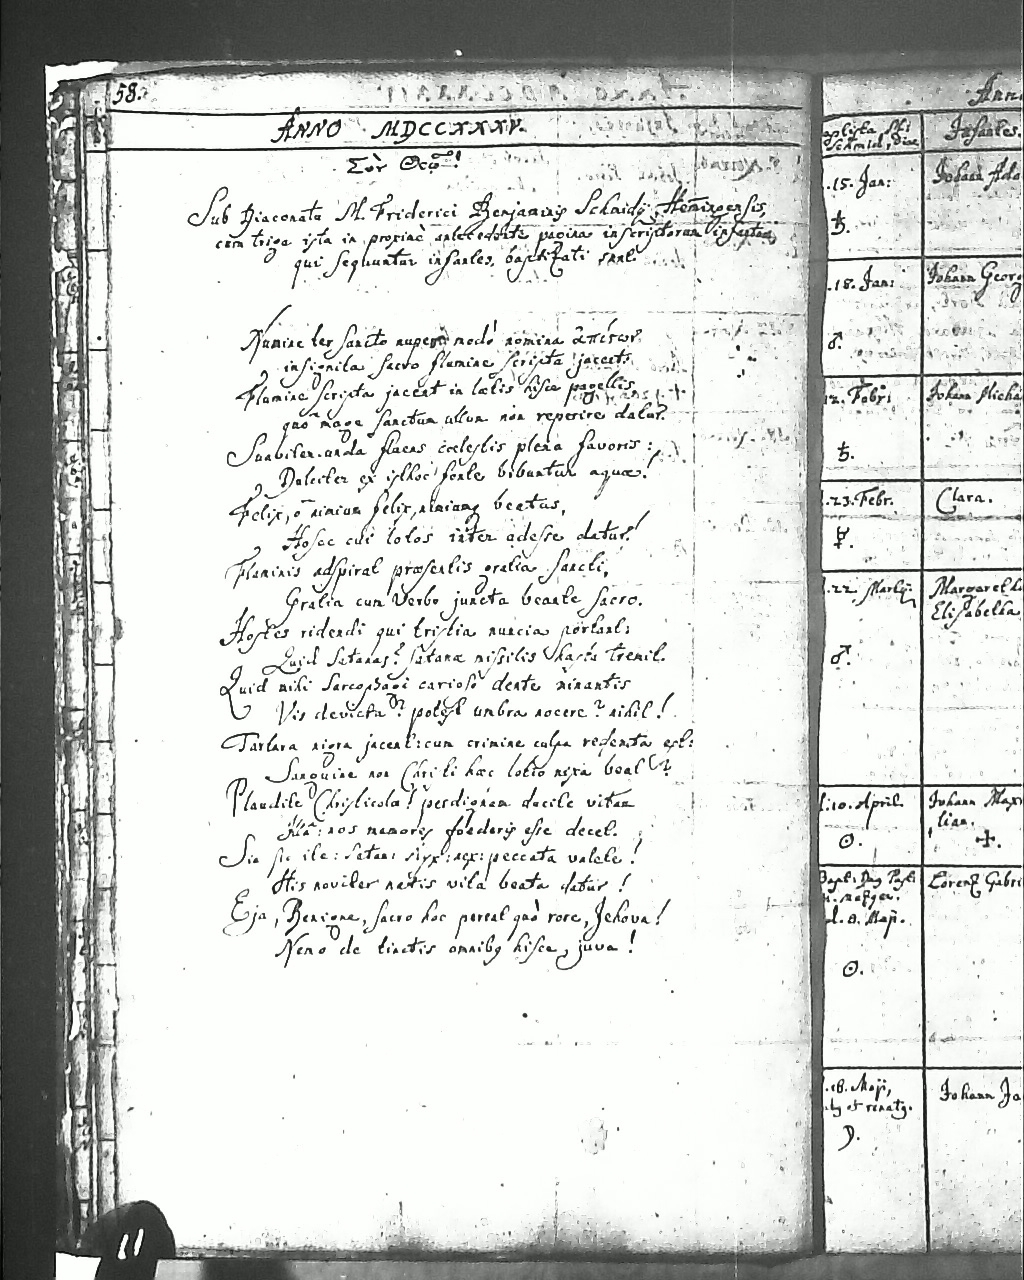 58.
ANNO MDCCXXXV.
Σὺν Θεῷ!
Sub Diaconatu M. Friderici Benjaminis Schmidij, Hemingensis,
cum triga ista in proximè antecedente pagina inscriptorum
qui sequuntur infantes, baptizati sunt.
Numine ter sancto nuper modò nomina
insignita sacro flumine scripta jacent.
Flumine scripta jacent in lætis hisce pagellis,
quo mage sanctum ullum non reperire datur.
Suaviter unda fluens cœlestis plena favoris:
Dulciter ex isthoc fonte bibuntur aquæ!
Felix, ô nimium felix, nimiumq beatus,
Hosce cui lotos inter adesse datur!
Flaminis adspirat præsentis gratia sancti,
Gratia cum Verbo juncta beante sacro.
Hostes ridendi qui tristia nuncia portant:
Quid Satanas? Satanæ missilis hasta tremit.
Quid mihi Sarcophagi carioso dente minantis
Vis devicta? potest umbra nocere? nihil!
Tartara nigra jacent: cum crimine culpa redemta est:
Sanguine non Christi hæc lotio nixa beat?
Plaudite Christicolæ! perdignam ducite vitam
nos memores foederis esse decet.
Sic sic ite: Satan: styx: nex: peccata valete!
His noviter natis vita beata datur!
Eja, Benigne, sacro hoc pereat quò rore, Jehova!
Nemo de tinctis omnibq hisce, juva!
Ann
Infantes.
Schmid, Diac
.15. Jan:
Johann Ada
♄.
.18. Jan:
Johann Georg
♂.
12. Febr:
Johann Micha
♄.
.23. Febr.
Clara.
☿.
.22. Martij.
Margaretha
Elisabetha
♂.
.10. April.
Johann Maxi
lian.
☉.
✝.
Lorenz Gabri
d. 8. Maji.
☉.
.16. Maji,
et renatq.
Johann Ja
☽.
11